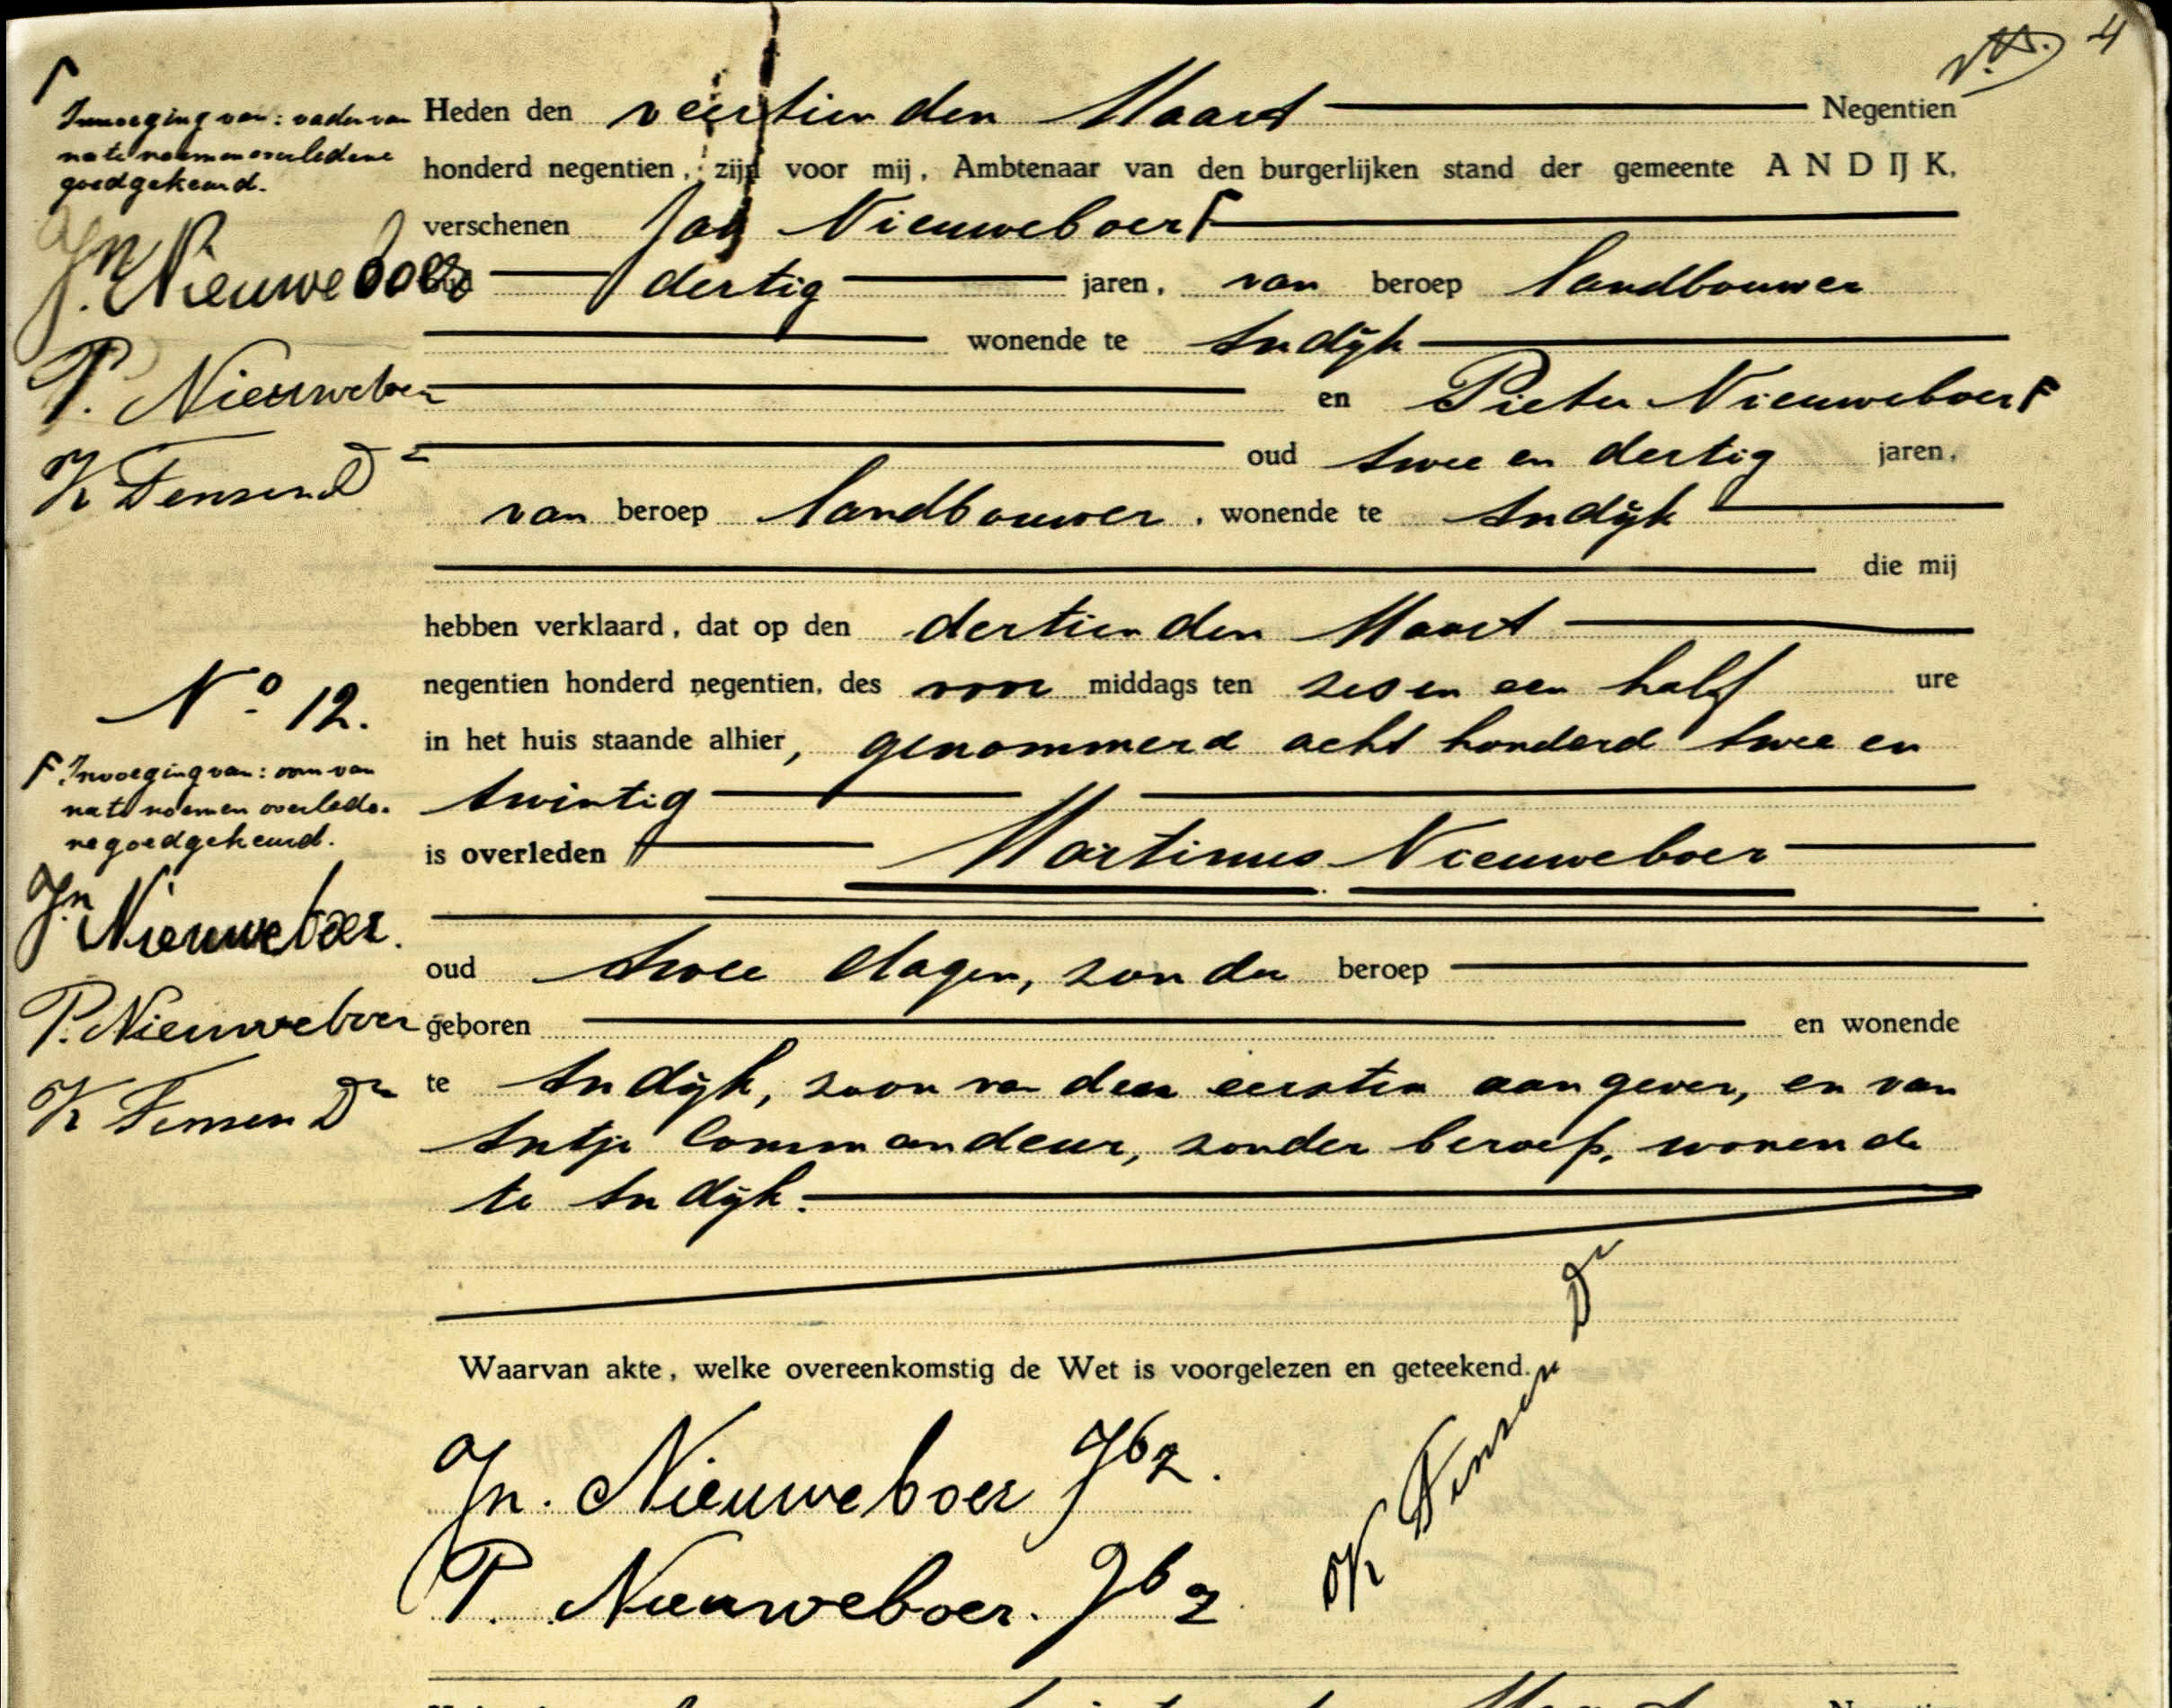 4
Heden den veertienden Maart Negentien
honderd negentien, zijn voor mij, Ambtenaar van den burgerlijken stand der gemeente ANDIJK,
verschenen Jan Nieuweboer Γ
oud dertig jaren, van beroep landbouwer
wonende te Andijk
en Pieter Nieuweboer F
oud twee en dertig jaren,
van beroep landbouwer, wonende te Andijk
die mij
hebben verklaard, dat op den dertienden Maart
negentien honderd negentien, des voor middags ten zes en een half ure
in het huis staande alhier, genommerd acht honderd twee en
twintig
is overleden Martinus Nieuweboer
oud twee dagen, zonder beroep
geboren en wonende
te Andijk, zoon van den eersten aangever, en van
Antje Commandeur, zonder beroep, wonende
te Andijk.
Waarvan akte, welke overeenkomstig de Wet is voorgelezen en geteekend.
Jn. Nieuweboer Jbz.
P. Nieuweboer. Jbz
Γ Invoeging van: vader van
na te noemen overledene
goedgekeurd.
Jn. Nieuweboer
P. Nieuweboer
No 12.
F Invoeging van: oom van
na te noemen overlede-
ne goedgekeurd.
Jn Nieuweboer.
P. Nieuweboer